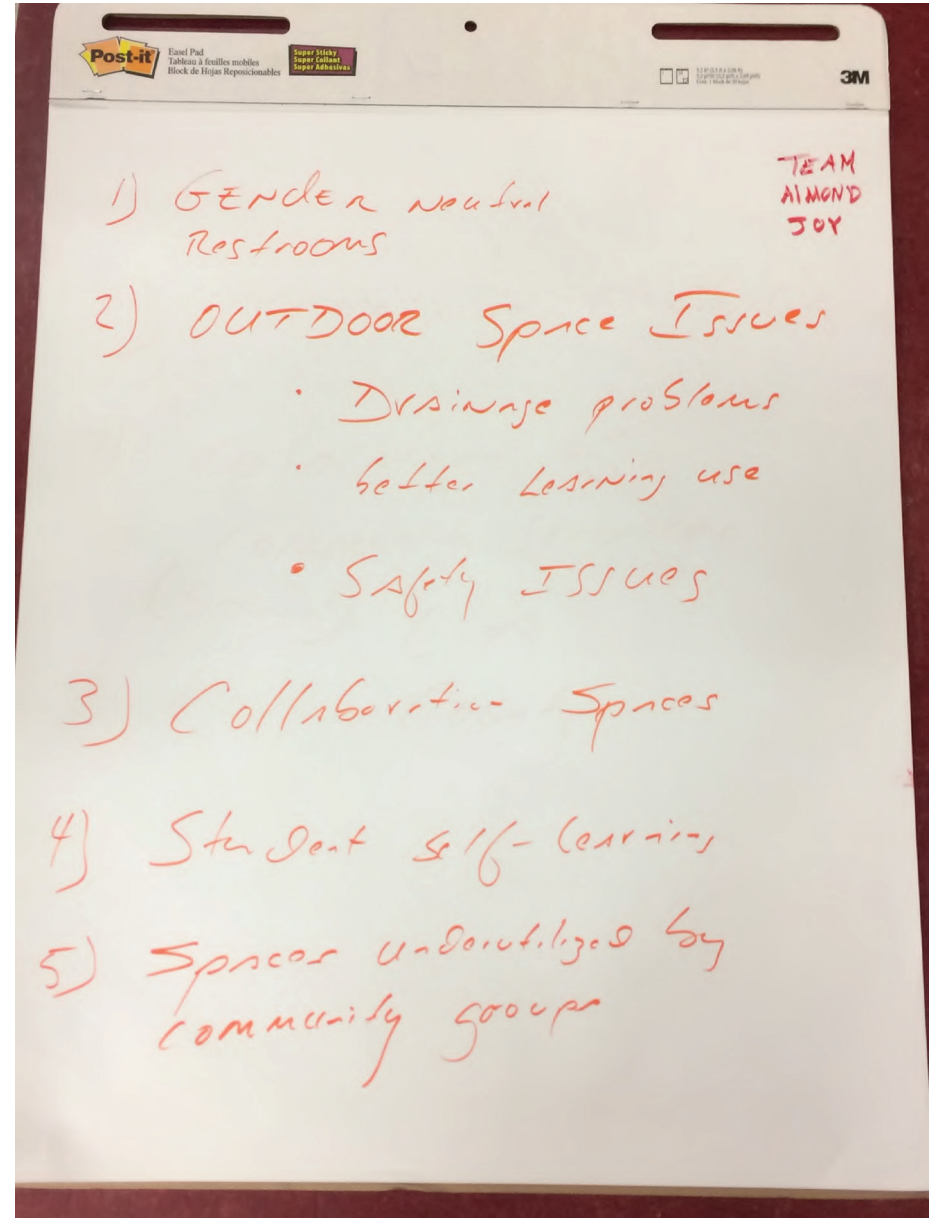 Post-it
Easel Pad
Tableau à feuilles mobiles
Block de Hojas Reposicionables
Super Sticky
Super Collant
Super Adhesivas
3M
TEAM
AlMOND
JOY
1) GENdER Neutral
Restrooms
2) OUTDOOR Space Issues
• Drainage problems
• better Learning use
• Safety ISSues
3) Collaboration Spaces
4) Student self-learning
5) Spaces underutilized by
community groups